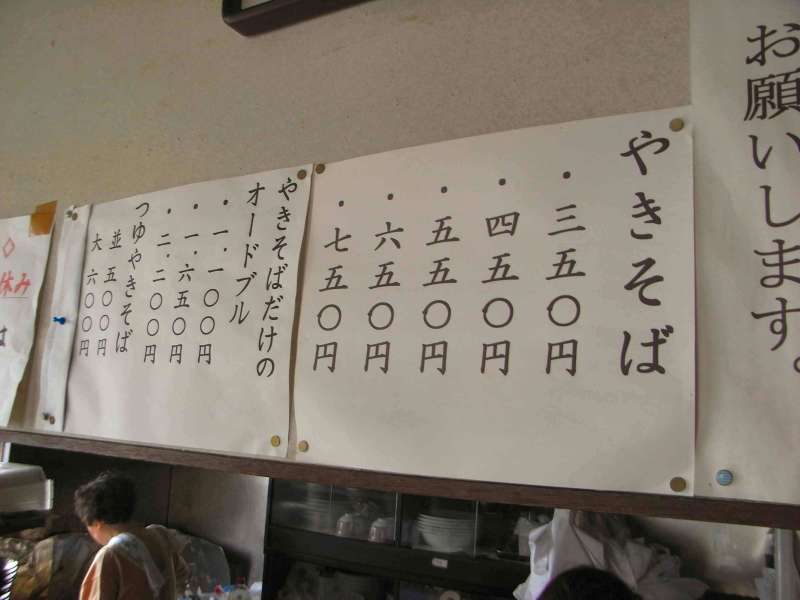 お願いします。
やきそば
・三五〇円
・四五〇円
・五五〇円
・六五〇円
・七五〇円
やきそばだけの
オードブル
・一、一〇〇円
・一、六五〇円
・二、二〇〇円
つゆやきそば
並 五〇〇円
大 六〇〇円
◇
休み
は